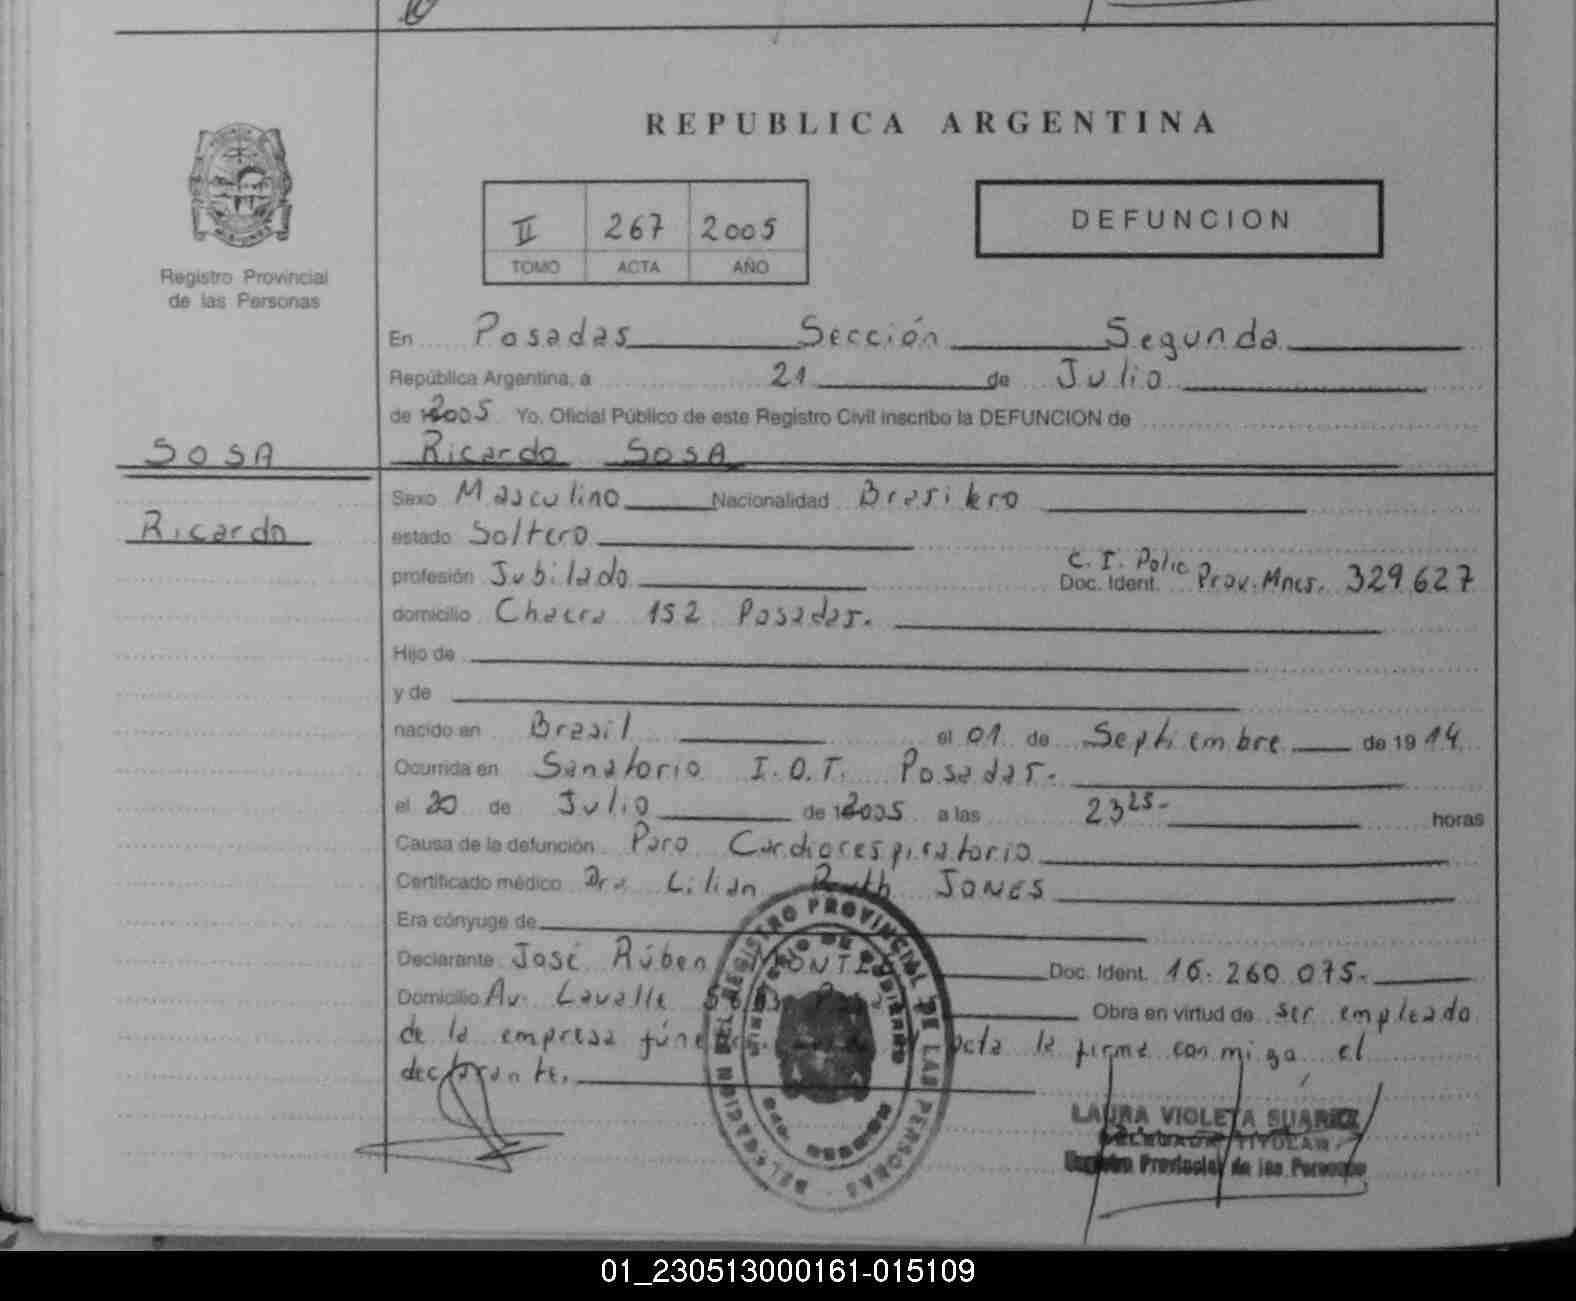 REPUBLICA ARGENTINA
II 267 2005
TOMO ACTA AÑO
DEFUNCION
Registro Provincial
de las Personas
En Posadas Sección Segunda
República Argentina, a 21 de Julio
de 2005 Yo, Oficial Público de este Registro Civil inscribo la DEFUNCION de
SOSA
Ricardo SOSA
Ricardo
Sexo Masculino Nacionalidad Brasilero
estado Soltero
profesión Jubilado Doc. Ident. C. I. Polic Prov. Mnes. 329.627
domicilio Chacra 152 Posadas.
Hijo de
y de
nacido en Brasil el 01 de Septiembre de 1914
Ocurrida en Sanatorio I.O.T. Posadas.
el 20 de Julio de 2005 a las 23 25- horas
Causa de la defunción Paro Cardiorespiratorio
Certificado médico Dra Lilian Ruth JONES
Era cónyuge de
Declarante José Rúben Doc. Ident. 16.260.075.
Domicilio Av. Lavalle Obra en virtud de ser empleado
de la empresa la firma conmigo el
declarante.
DELEGACION DEL REGISTRO PROVINCIAL DE LAS PERSONAS
MINISTERIO DE GOBIERNO
LAURA VIOLETA SUAREZ
DELEGADA TITULAR
Registro Provincial de las Personas
01_230513000161-015109